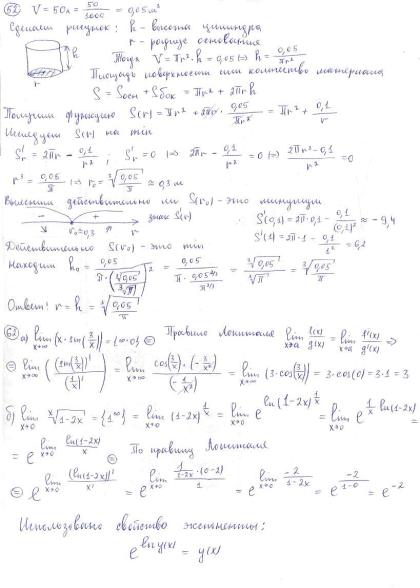 52 V = 50л = 50/1000 = 0,05 м³
Сделаем рисунок: h - высота цилиндра
r - радиус основания
h
r
Тогда V = πr²·h = 0,05 ⇒ h = 0,05/πr²
Площадь поверхности или количество материала
S = Sосн + Sбок = πr² + 2πrh
Получим функцию S(r) = πr² + 2πr · 0,05/πr² = πr² + 0,1/r
Исследуем S(r) на min
S'r = 2πr - 0,1/r² ; S'r = 0 ⇒ 2πr - 0,1/r² = 0 ⇒ 2πr³-0,1/r² = 0
r³ = 0,05/π ⇒ r₀ = ∛(0,05/π) ≈ 0,3 м
Выясним действительно ли S(r₀) - это минимум
- + знак S'(r)
r₀≈0,3 r
S'(0,1) = 2π·0,1 - 0,1/(0,1)² ≈ -9,4
S'(1) = 2π·1 - 0,1/1² ≈ 6,2
Действительно S(r₀) - это min
Находим h₀ = 0,05/(π·(∛0,05/∛π)²) = 0,05/(π·0,05^(2/3)/π^(2/3)) = ∛0,05/∛π = ∛(0,05/π)
Ответ: r = h = ∛(0,05/π)
62 а) lim x→∞ (x·sin(3/x)) = {∞·0} = Правило Лопиталя lim x→a f(x)/g(x) = lim x→a f'(x)/g'(x) ⇒
= lim x→∞ ((sin(3/x))'/(1/x)') = lim x→∞ cos(3/x)·(-3/x²)/(-1/x²) = lim x→∞ (3·cos(3/x)) = 3·cos(0) = 3·1 = 3
б) lim x→0 ˣ√(1-2x) = {1^∞} = lim x→0 (1-2x)^(1/x) = lim x→0 e^(ln(1-2x)^(1/x)) = lim x→0 e^(1/x ln(1-2x)) =
= e^(lim x→0 ln(1-2x)/x) = По правилу Лопиталя
= e^(lim x→0 (ln(1-2x))'/x') = e^(lim x→0 (1/(1-2x)·(0-2))/1) = e^(lim x→0 -2/(1-2x)) = e^(-2/(1-0)) = e^(-2)
Использовано свойство экспоненты:
e^(ln y(x)) = y(x)